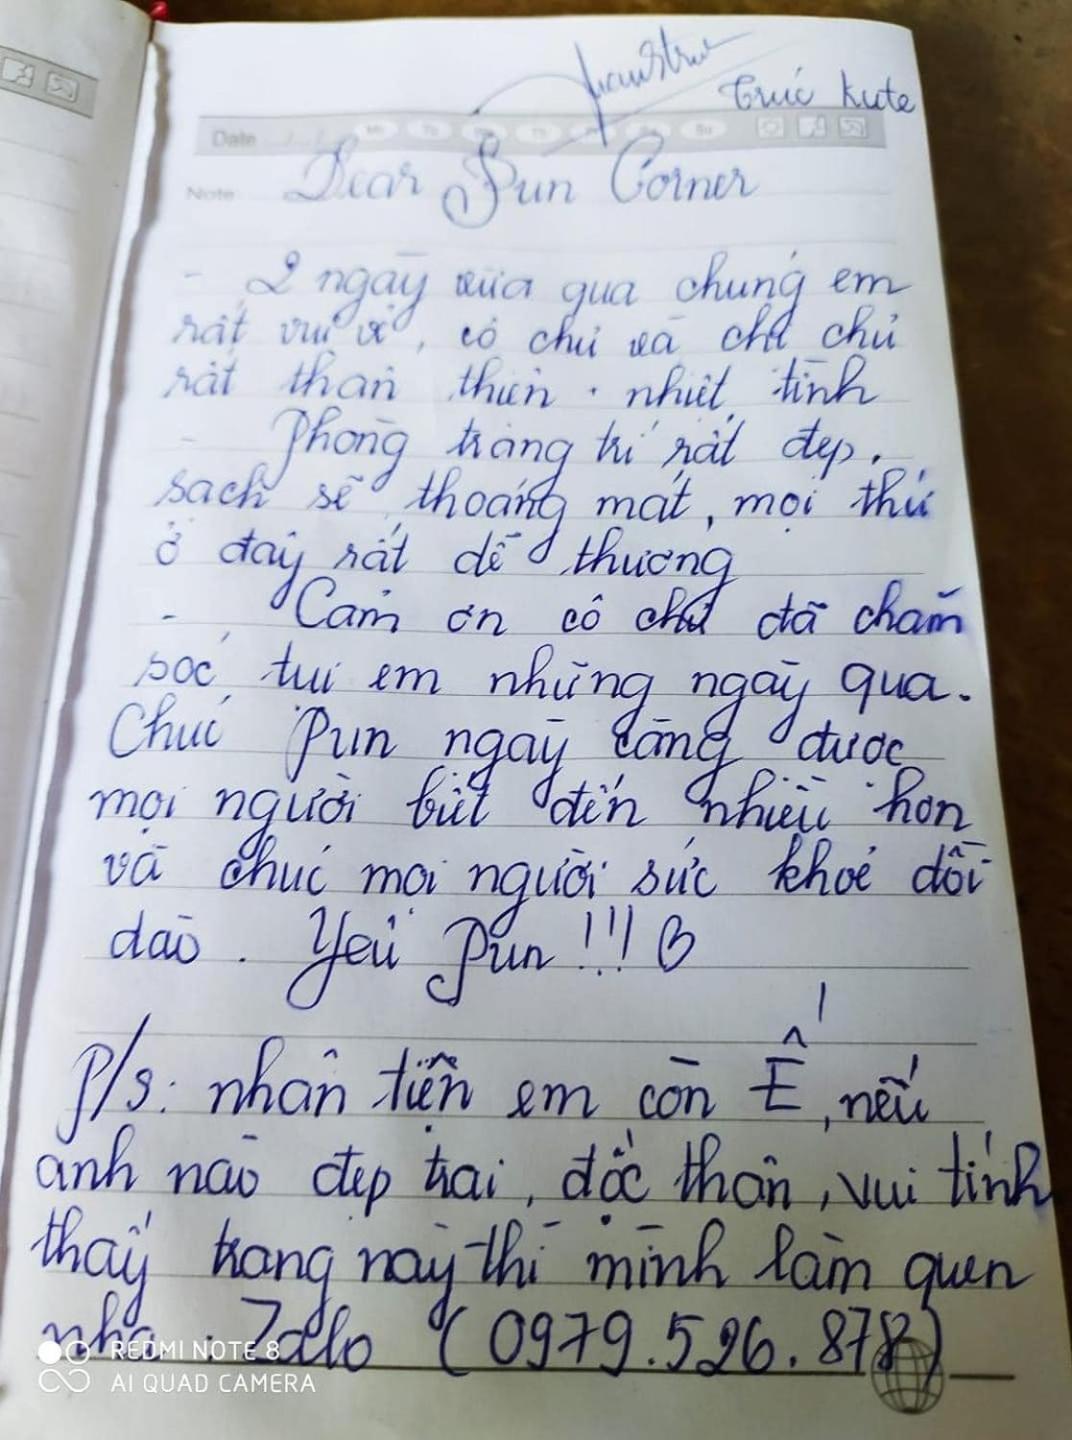 Trúc kute
Date
Note
Dear Pun Corner
- 2 ngày vừa qua chúng em
rất vui vẻ, cô chú và chị chủ
rất thân thiện. nhiệt tình
- Phòng trang trí rất đẹp,
sạch sẽ thoáng mát, mọi thứ
ở đây rất dễ thương
- Cảm ơn cô chú đã chăm
sóc tụi em những ngày qua.
Chúc Pun ngày càng được
mọi người biết đến nhiều hơn
và chúc mọi người sức khoẻ dồi
dào. Yêu Pun!!!
P/s: nhân tiện em còn Ế, nếu
anh nào đẹp trai, độc thân, vui tính
thấy trang này thì mình làm quen
nha. Zalo (0979.526.878)
REDMI NOTE 8
AI QUAD CAMERA